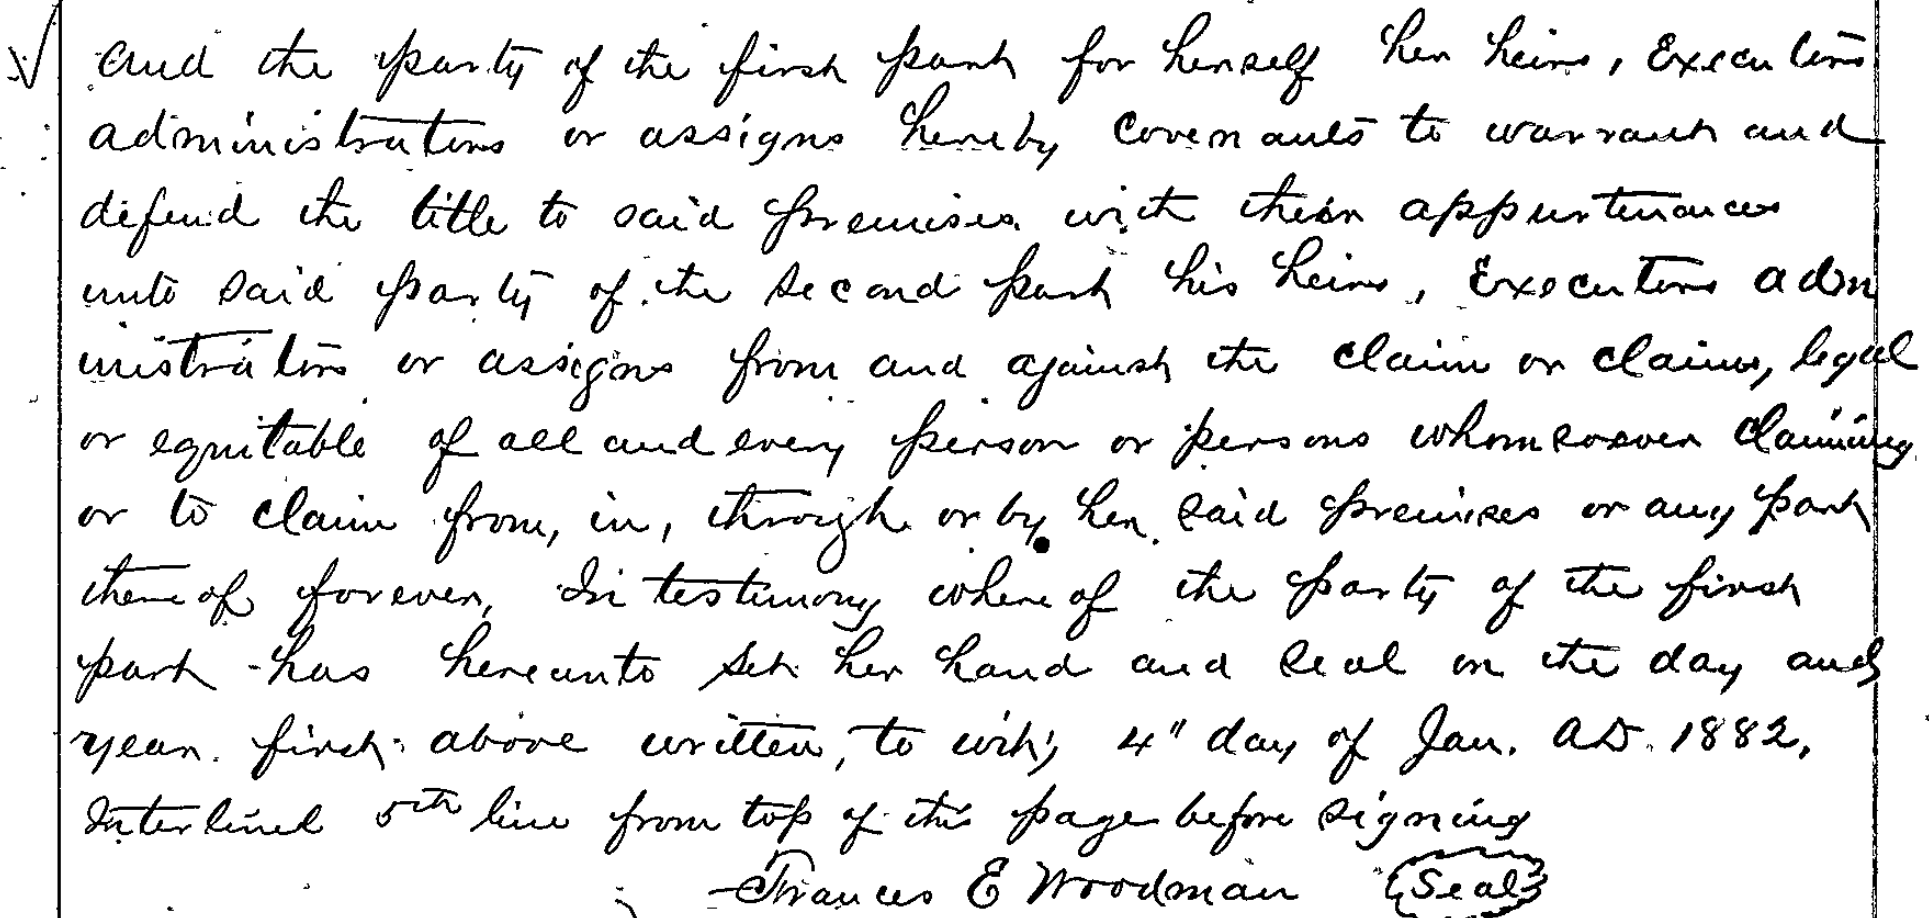 and the party of the first part for herself her heirs, Executors
administrators or assigns hereby covenants to warrant and
defend the title to said premises with their appurtenances
unto said party of the second part his heirs, Executors adm
inistrators or assigns from and against the claim or claims, legal
or equitable of all and every person or persons whomsoever claiming
or to claim from, in, through or by her said premises or any part
thereof forever, In testimony whereof the party of the first
part has hereunto set her hand and seal on the day and
year first above written, to wit; 4" day of Jan. AD. 1882,
Interlined 5th line from top of this page before signing
Frances E Woodman (Seal)